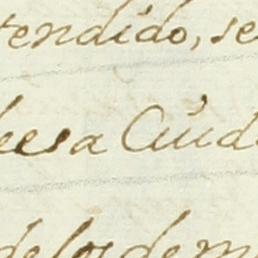 tendido, se
esa Ciud
de los dem